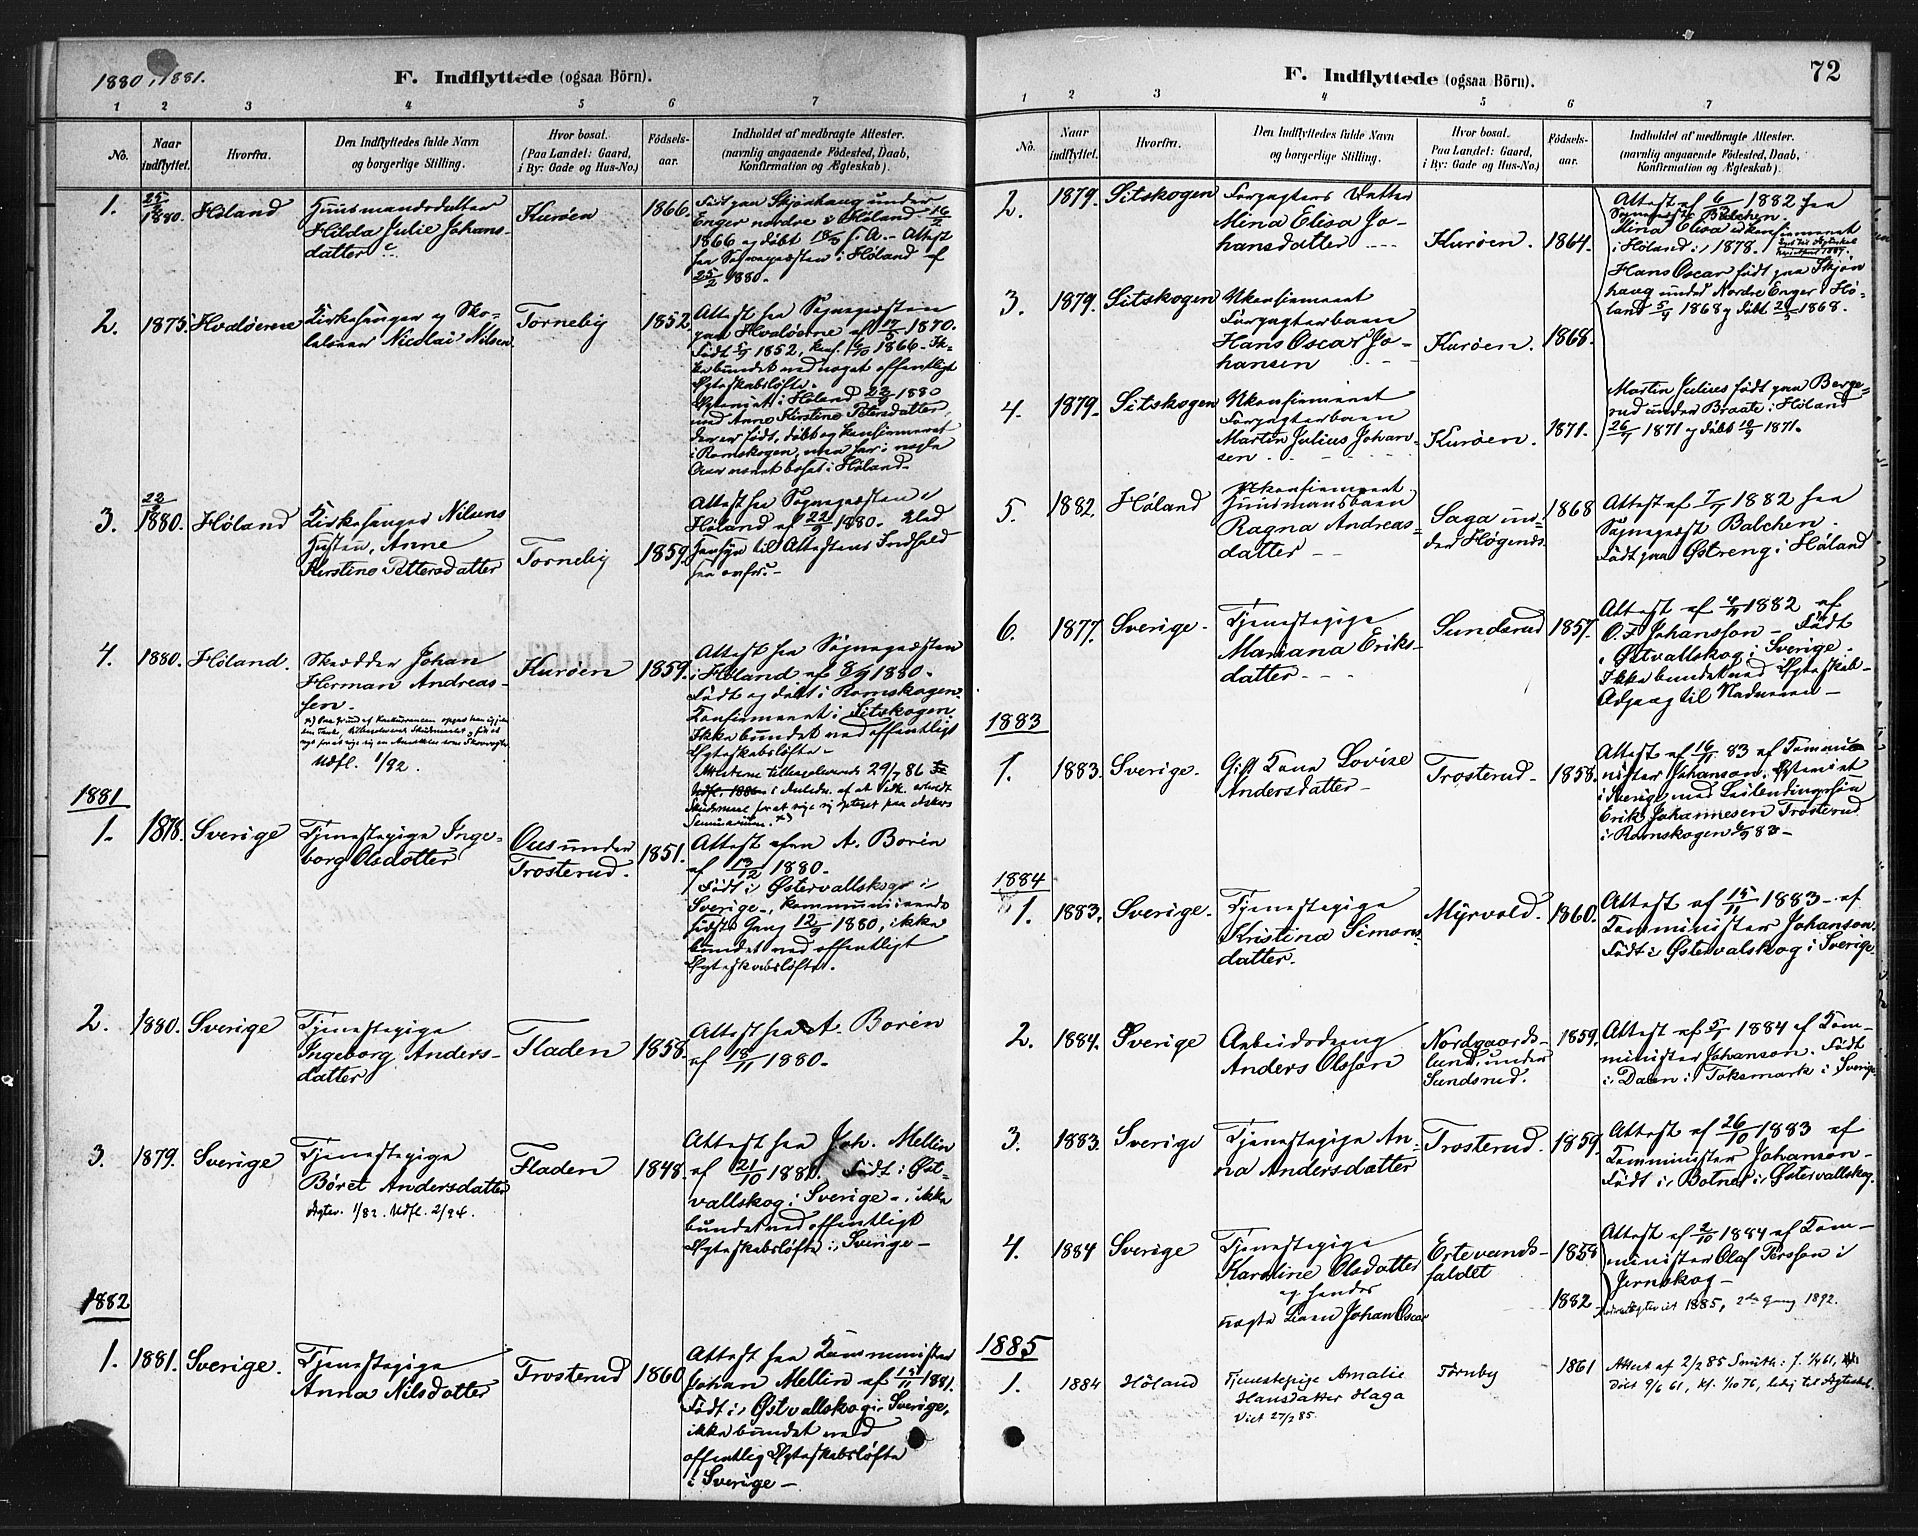 1880, 1881.
F. Indflyttede (ogsaa Börn).
1 2 3 4 5 6 7
No.
Naar indflyttet.
Hvorfra.
Den Indflyttedes fulde Navn
og borgerlige Stilling.
Hvor bosat.
(Paa Landet: Gaard,
i By: Gade og Hus-No.)
Fødsels-
aar.
Indholdet af medbragte Attester.
(navnlig angaaende Fødested, Daab,
Konfirmation og Ægteskab).
1. 25/2 1880. Høland
Huusmandsdatter
Hilda Julie Johans-
datter
Kurøen
1866.
Født paa Skjønhaug under
Enger nordre i Høland
1866 og døbt s. A. - Attest
fra Sognepræsten i Høland af
25/2 1880.
2. 1875 Hvaløerne
Kirkesanger og Sko-
lelærer Nicolai Nilsen.
Torneby
1852.
Attest fra Sognepræsten
paa Hvaløerne af 1870.
Født 1852, konf. 1866. Ik-
ke bundet ved noget offentligt
Ægteskabsløfte.
Ægteviet i Høland 1880
med Anne Kirstine Petersdatter,
der er født, døbt og konfirmeret
i Romskogen, men har i nogle
Aar været bosat i Høland.
3. 1880. Høland
Kirkesanger Nilsens
Hustru, Anne
Kirstine Pettersdatter
Torneby
1859.
Attest fra Sognepræsten i
Høland af 22/9 1880. Med
Hensyn til Attestens Indhold
see ovfor.-
4. 1880. Høland.
Skrædder Johan
Herman Andreas-
sen.
Udfl. 1/92.
Kurøen
1859.
Attest fra Sognepræsten
i Høland af 1880.
Født og døbt i Romskogen.
Konfirmeret i Sitskogen
Ikke bundet ved offentligt
Ægteskabsløfte.-
1881
1. 1878. Sverige
Tjenestepige Inge-
borg Olsdatter
Ous under
Trosterud.
1851.
Attest fra A. Borén
af 13/12 1880.
Født i Østervallskog i
Sverige, kommunicerede
sidste Gang 12/9 1880, ikke
bundet ved offentligt
Ægteskabsløfte.
2. 1880. Sverige
Tjenestepige
Ingeborg Anders-
datter
Fladen
1858.
Attest fra A. Borén
af 18/11 1880.
3. 1879. Sverige
Tjenestepige
Böret Andersdatter
Ægtev. 1/82. Udfl. 2/94.
Fladen
1848.
Attest fra Joh. Mellin
af 21/10 1880. Født i Øst-
vallskog i Sverige, ikke
bundet ved offentligt
Ægteskabsløfte i Sverige-
1882
1. 1881. Sverige.
Tjenestepige
Anna Nilsdatter
Trosterud
1860
Attest fra Komminister
Johan Mellin af 13/11 1881.
Født i Østvallskog i Sverige,
ikke bundet ved
offentlig Ægteskabsløfte
i Sverige-
F. Indflyttede (ogsaa Börn).
72
1 2 3 4 5 6 7
No.
Naar indflyttet.
Hvorfra.
Den Indflyttedes fulde Navn
og borgerlige Stilling.
Hvor bosat.
Paa Landet: Gaard,
i By: Gade og Hus-No.)
Fødsels-
aar.
Indholdet af medbragte Attester.
(navnlig angaaende Fødested, Daab,
Konfirmation og Ægteskab).
2. 1879. Sitskogen
Forpagters Datter
Mina Elisa Jo-
hansdatter
Kurøen. 1864.
Attest af 1882 fra
Sognepræst Balchen.
Mina Elisa er konfirmeret
i Høland i 1878.
3. 1879. Sitskogen
Ukonfirmeret
Forpagterbarn
Hans Oscar Jo-
hansen
Kurøen. 1868.
Hans Oscar født paa Skjøn
haug under Nordre Enger i Hø-
land 1868 og døbt 1868.
4. 1879. Sitskogen
Ukonfirmeret
Forpagterbarn
Martin Julius Johan-
sen
Kurøen. 1871.
Martin Julius født paa Berge-
rud under Braate i Høland
1871 og døbt 10/9 1871.
5. 1882. Høland
Ukonfirmeret
Huusmandsbarn
Ragna Andreas-
datter
Saga un-
der Høgends.
1868
Attest af 1882 fra
Sognepræst Balchen.
Født paa Østreng i Høland
6. 1877. Sverige.
Tjenestepige
Mariana Eriks-
datter
Sundsrud
1857.
Attest af 1882 af
O. F. Johansson - Født
i Østvallskog i Sverige.
Ikke bundet ved Ægteskab-
Adgang til Nadveren-
1883
1. 1883. Sverige.
Gift Kone Lovise
Andersdatter
Trosterud.
1858.
Attest af 83 af Kommi-
nister Johanson. Ægteviet
i Sverige med Leilendingssøn
Erik Johannesen Trosterud
i Romskogen 83-
1884
1. 1883. Sverige.
Tjenestepige
Kristina Simons-
datter.
Myrvold.
1860.
Attest af 15/11 1883 af
Komminister Johanson.
Født i Østervalskog i Sverige.
2. 1884. Sverige
Arbeidsdreng
Anders Olsson
Nordgaards-
lund under
Sundsrud.
1859.
Attest af 1884 af Kom-
minister Johanson. Født
i Dalen i Töksmark i Sverige
3. 1883. Sverige
Tjenestepige An-
na Andersdatter
Trosterud.
1859.
Attest af 26/10 1883 af
Komminister Johanson-
Født i Botne i Østervallskog.
4. 1884 Sverige
Tjenestepige
Karoline Olsdatter
og hendes
uægte Barn Johan Oscar
Ertevands-
faldet
1859
1882
Attest af 2/10 1884 af Kom-
minister Olaf Persson i
Jernskog-
1885, 2den Gang 1892.
1885
1. 1884 Høland
Tjenestepige Amalie
Hansdatter Haga
Viet 27/2 85.
Tørnby
1861
Attest af 2/2 85 Smith: f. 61,
Døbt 9/6 61, kf. 1/10 76, ledig til Ægteskab.